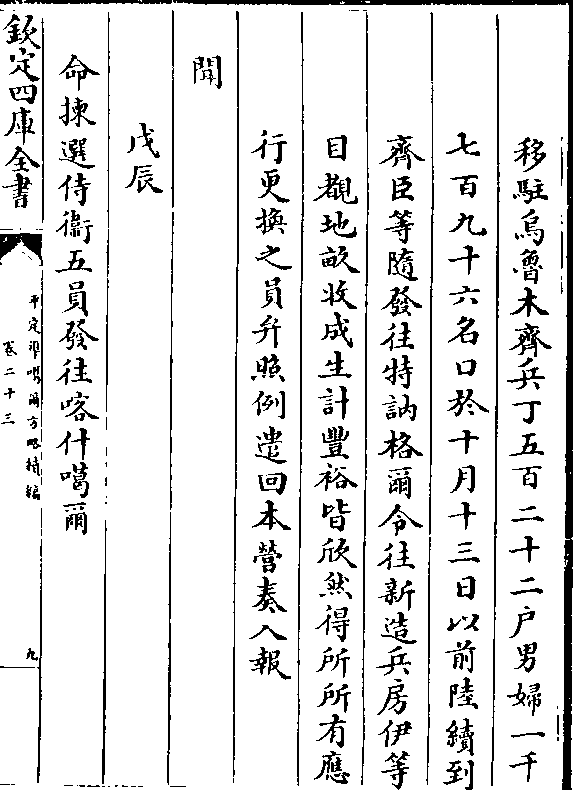 移駐烏魯木齊兵丁五百二十二户男婦一千
七百九十六名口於十月十三日以前陸續到
齊臣等隨發往特訥格爾令往新造兵房伊等
目覩地畝收成生計豐裕皆欣然得所所有應
行更換之員弁照例遣回本營奏入報
聞
戊辰
命揀選侍衞五員發往喀什噶爾
欽定四庫全書
平定準噶爾方略續編
卷二十三
九